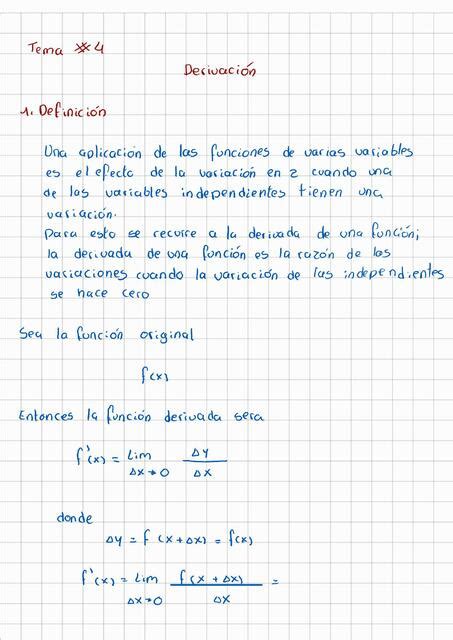 Tema #4
Derivación
1. Definición
Una aplicación de las funciones de varias variables
es el efecto de la variación en z cuando una
de las variables independientes tienen una
variación.
Para esto se recurre a la derivada de una función;
la derivada de una función es la razón de las
variaciones cuando la variación de las independientes
se hace cero
Sea la función original
f(x)
Entonces la función derivada sera
f'(x) = Lim Δy
Δx→0 Δx
donde
Δy = f (x + Δx) = f(x)
f'(x) = Lim f(x + Δx) =
Δx→0 Δx